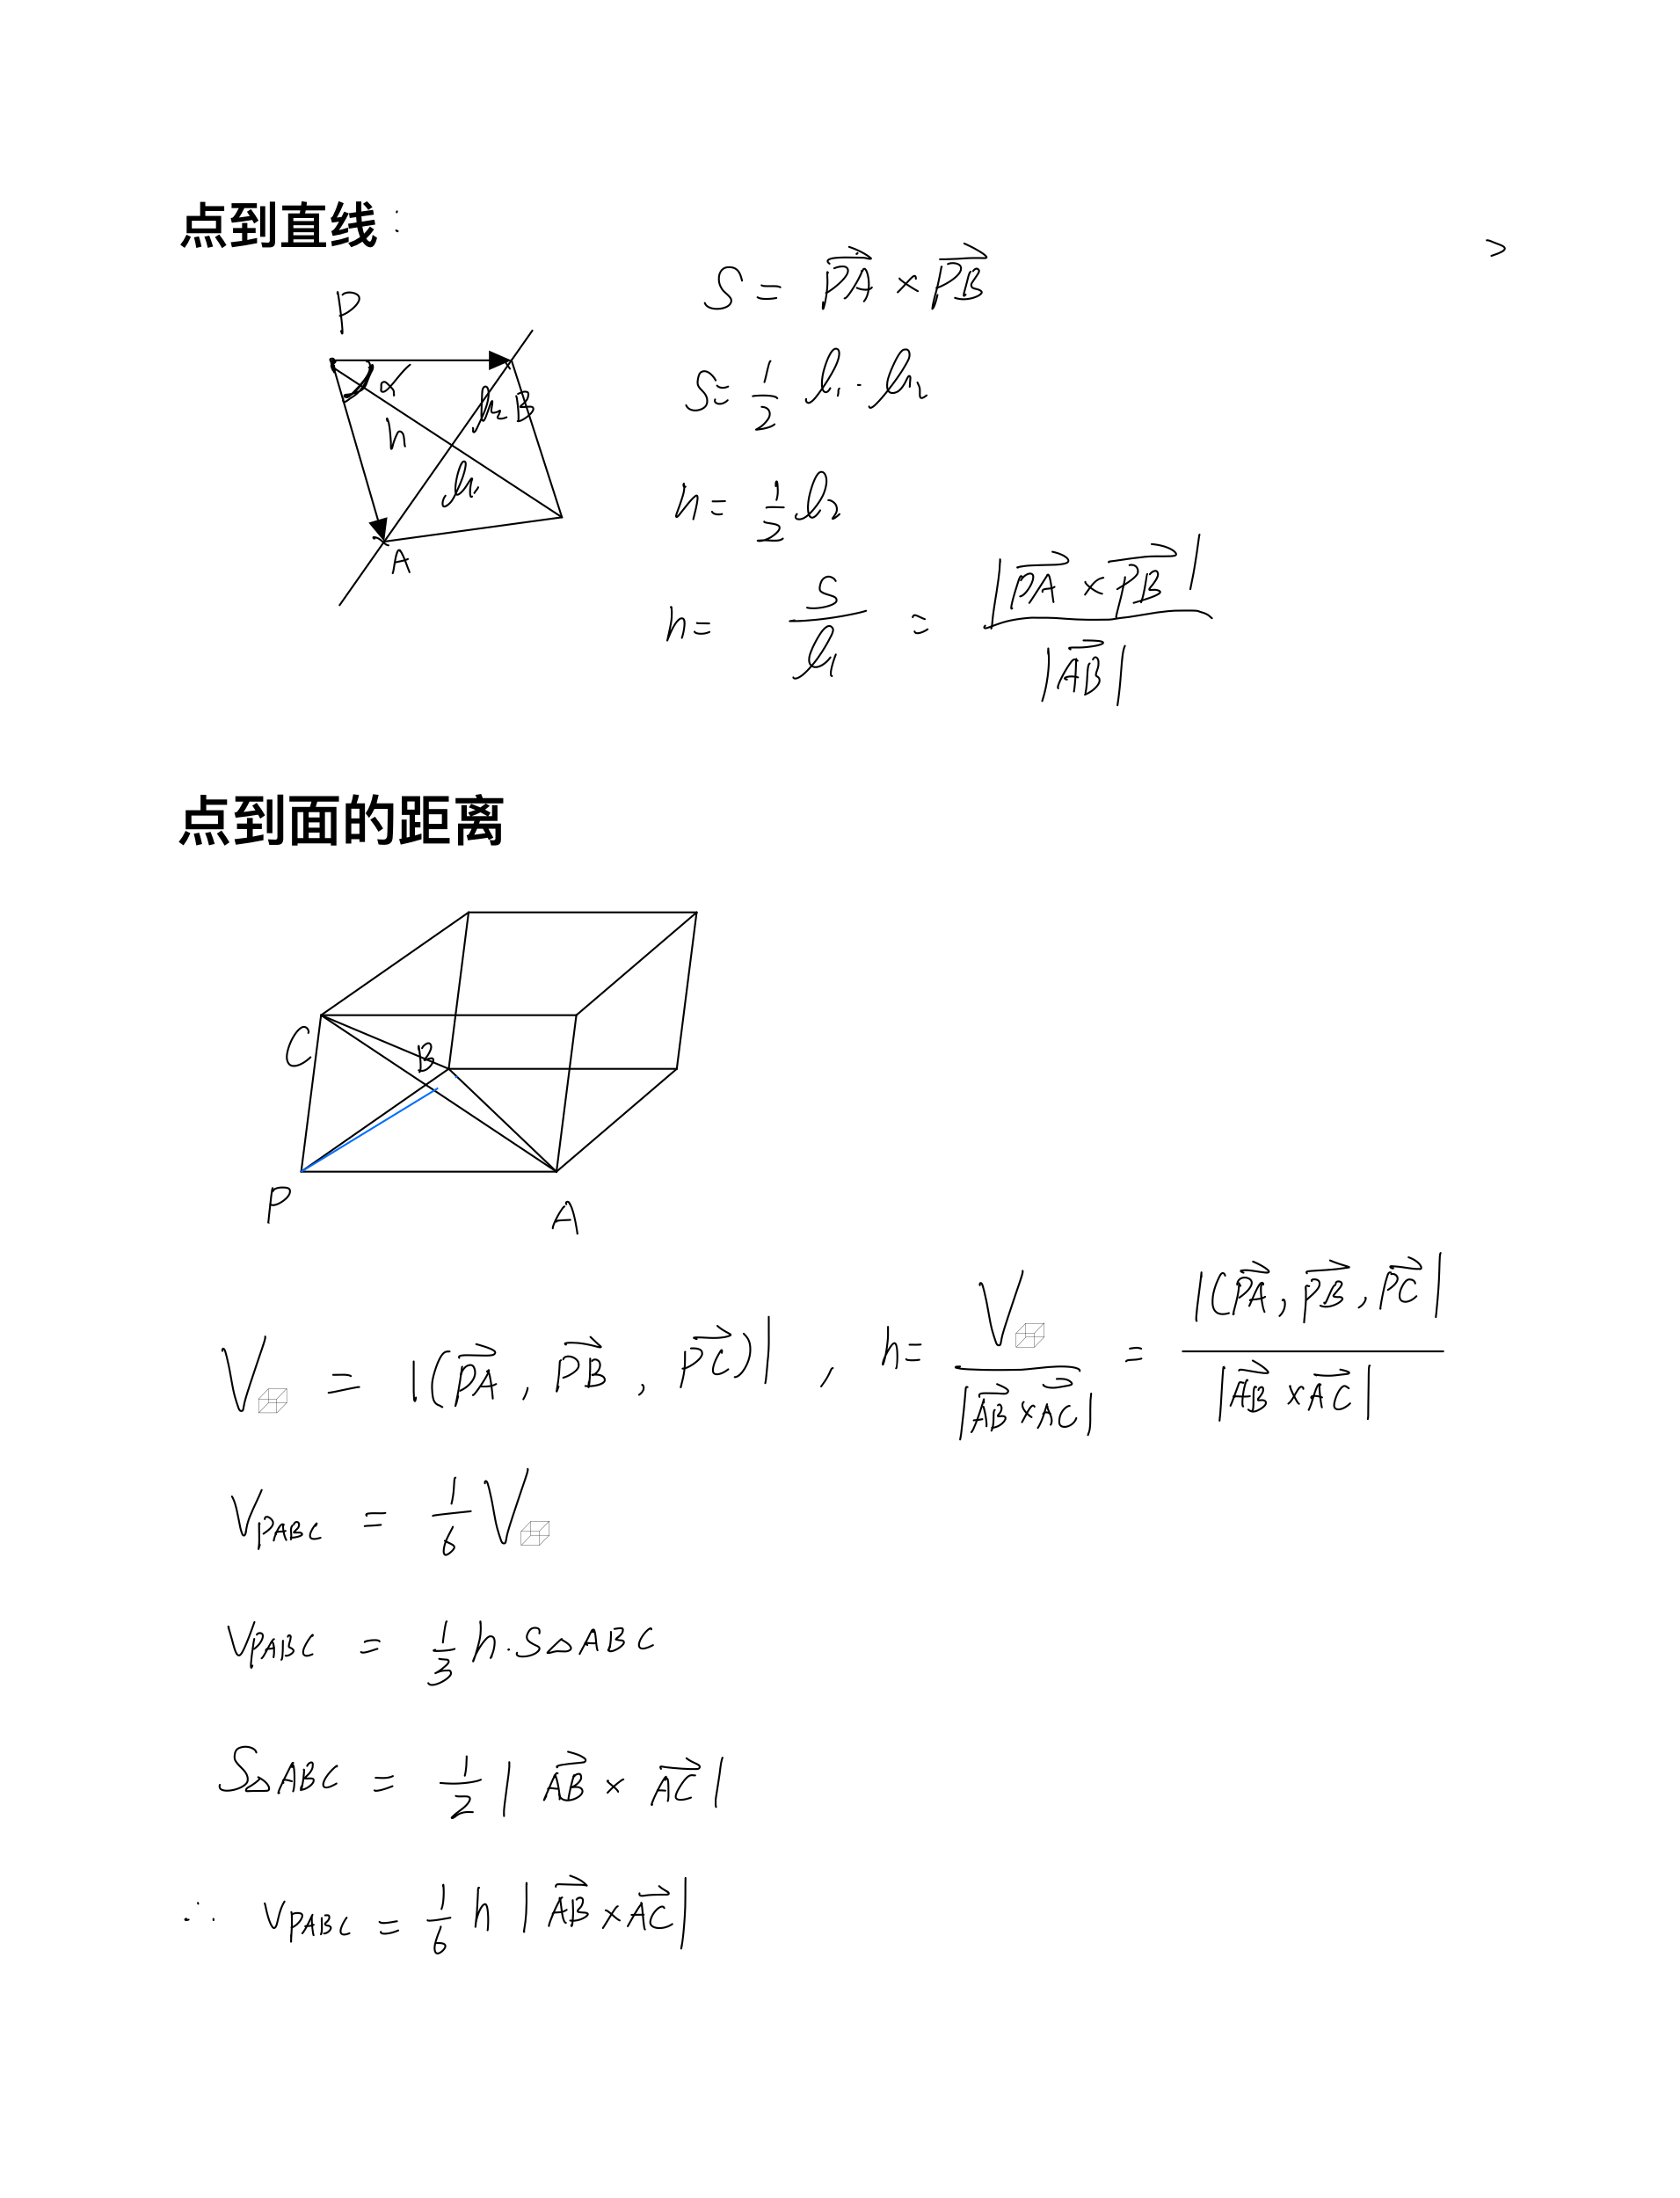 点到直线:
>
P
α
h
l₂
B
l₁
A
S = \vec{PA} × \vec{PB}
S = \frac{1}{2} l₁ · l₂
h = \frac{1}{2} l₂
h = \frac{S}{l₁} = \frac{|\vec{PA} × \vec{PB}|}{|\vec{AB}|}
点到面的距离
C
B
P
A
V = |(\vec{PA}, \vec{PB}, \vec{PC})| , h = \frac{V}{|\vec{AB} × \vec{AC}|} = \frac{|(\vec{PA}, \vec{PB}, \vec{PC}|}{|\vec{AB} × \vec{AC}|}
V_{PABC} = \frac{1}{6} V
V_{PABC} = \frac{1}{3} h · S△ABC
S△ABC = \frac{1}{2} | \vec{AB} × \vec{AC} |
∴ V_{PABC} = \frac{1}{6} h | \vec{AB} × \vec{AC} |